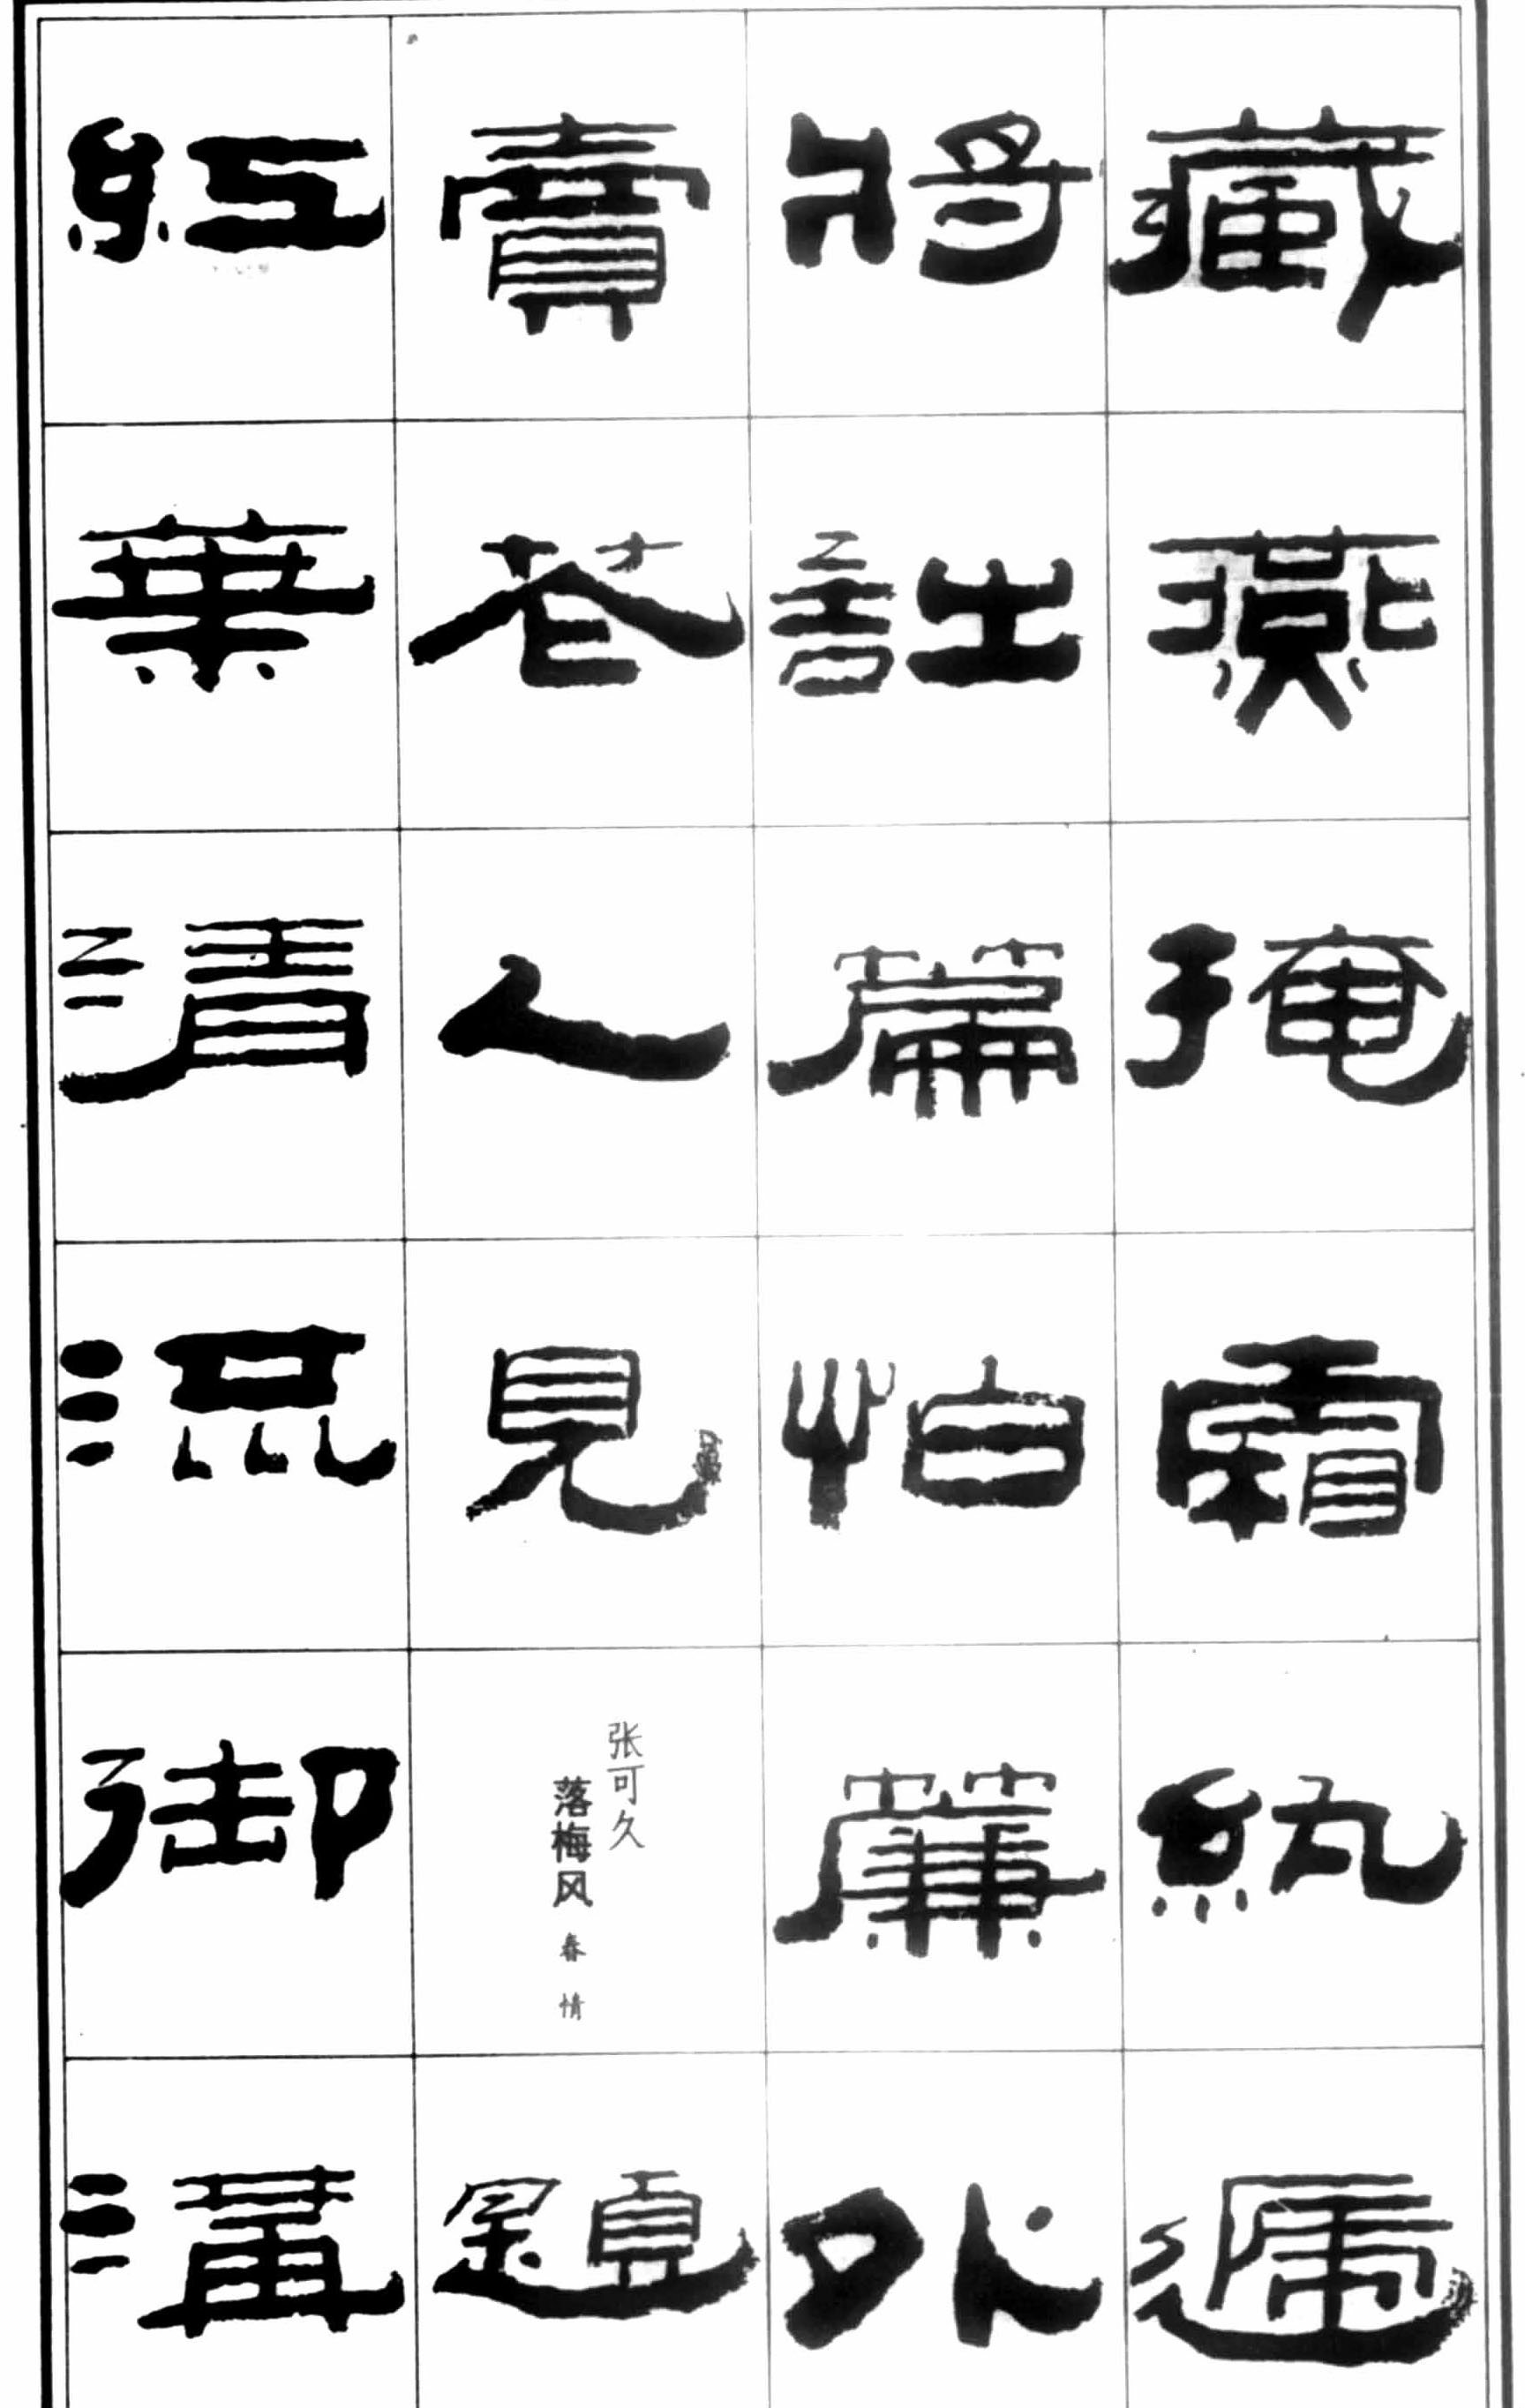 藏燕掩霜紈遞
將詩篇怕簾外
賣花人見
张可久
落梅风 春情
題
紅葉清流御溝